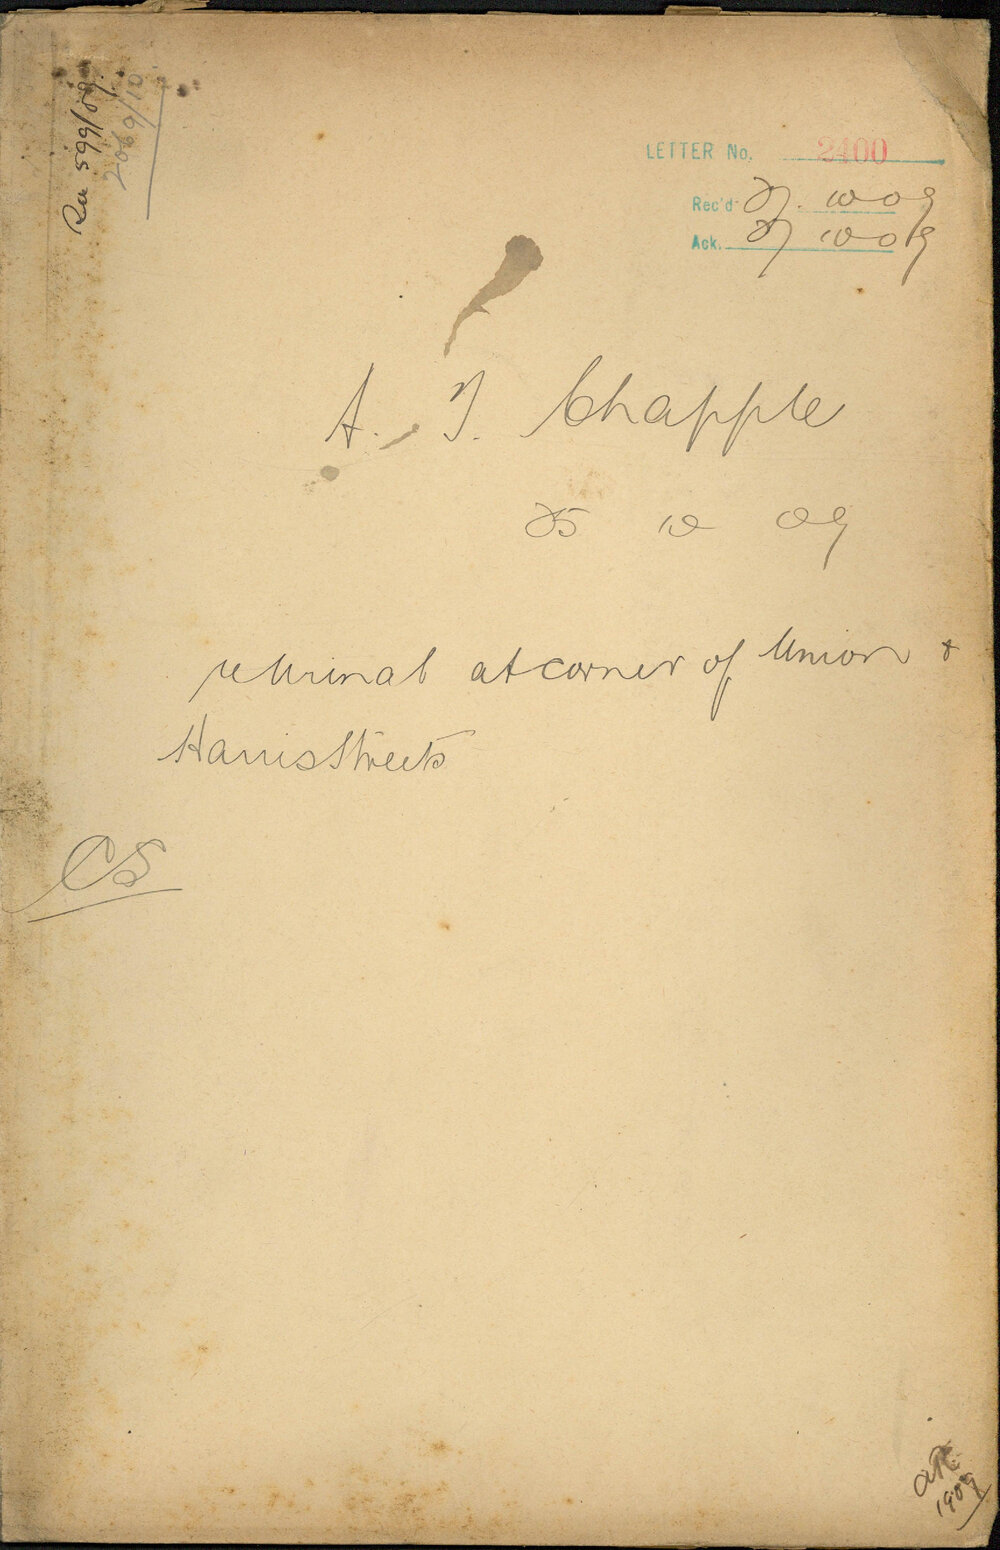 599/09.
2069/10
LETTER No. 2400
Rec'd 27. 10 09
Ack. 27 10 09
A. T. Chapple
25 10 09
re Urinal at corner of Union &
Harris Streets
CS
1909